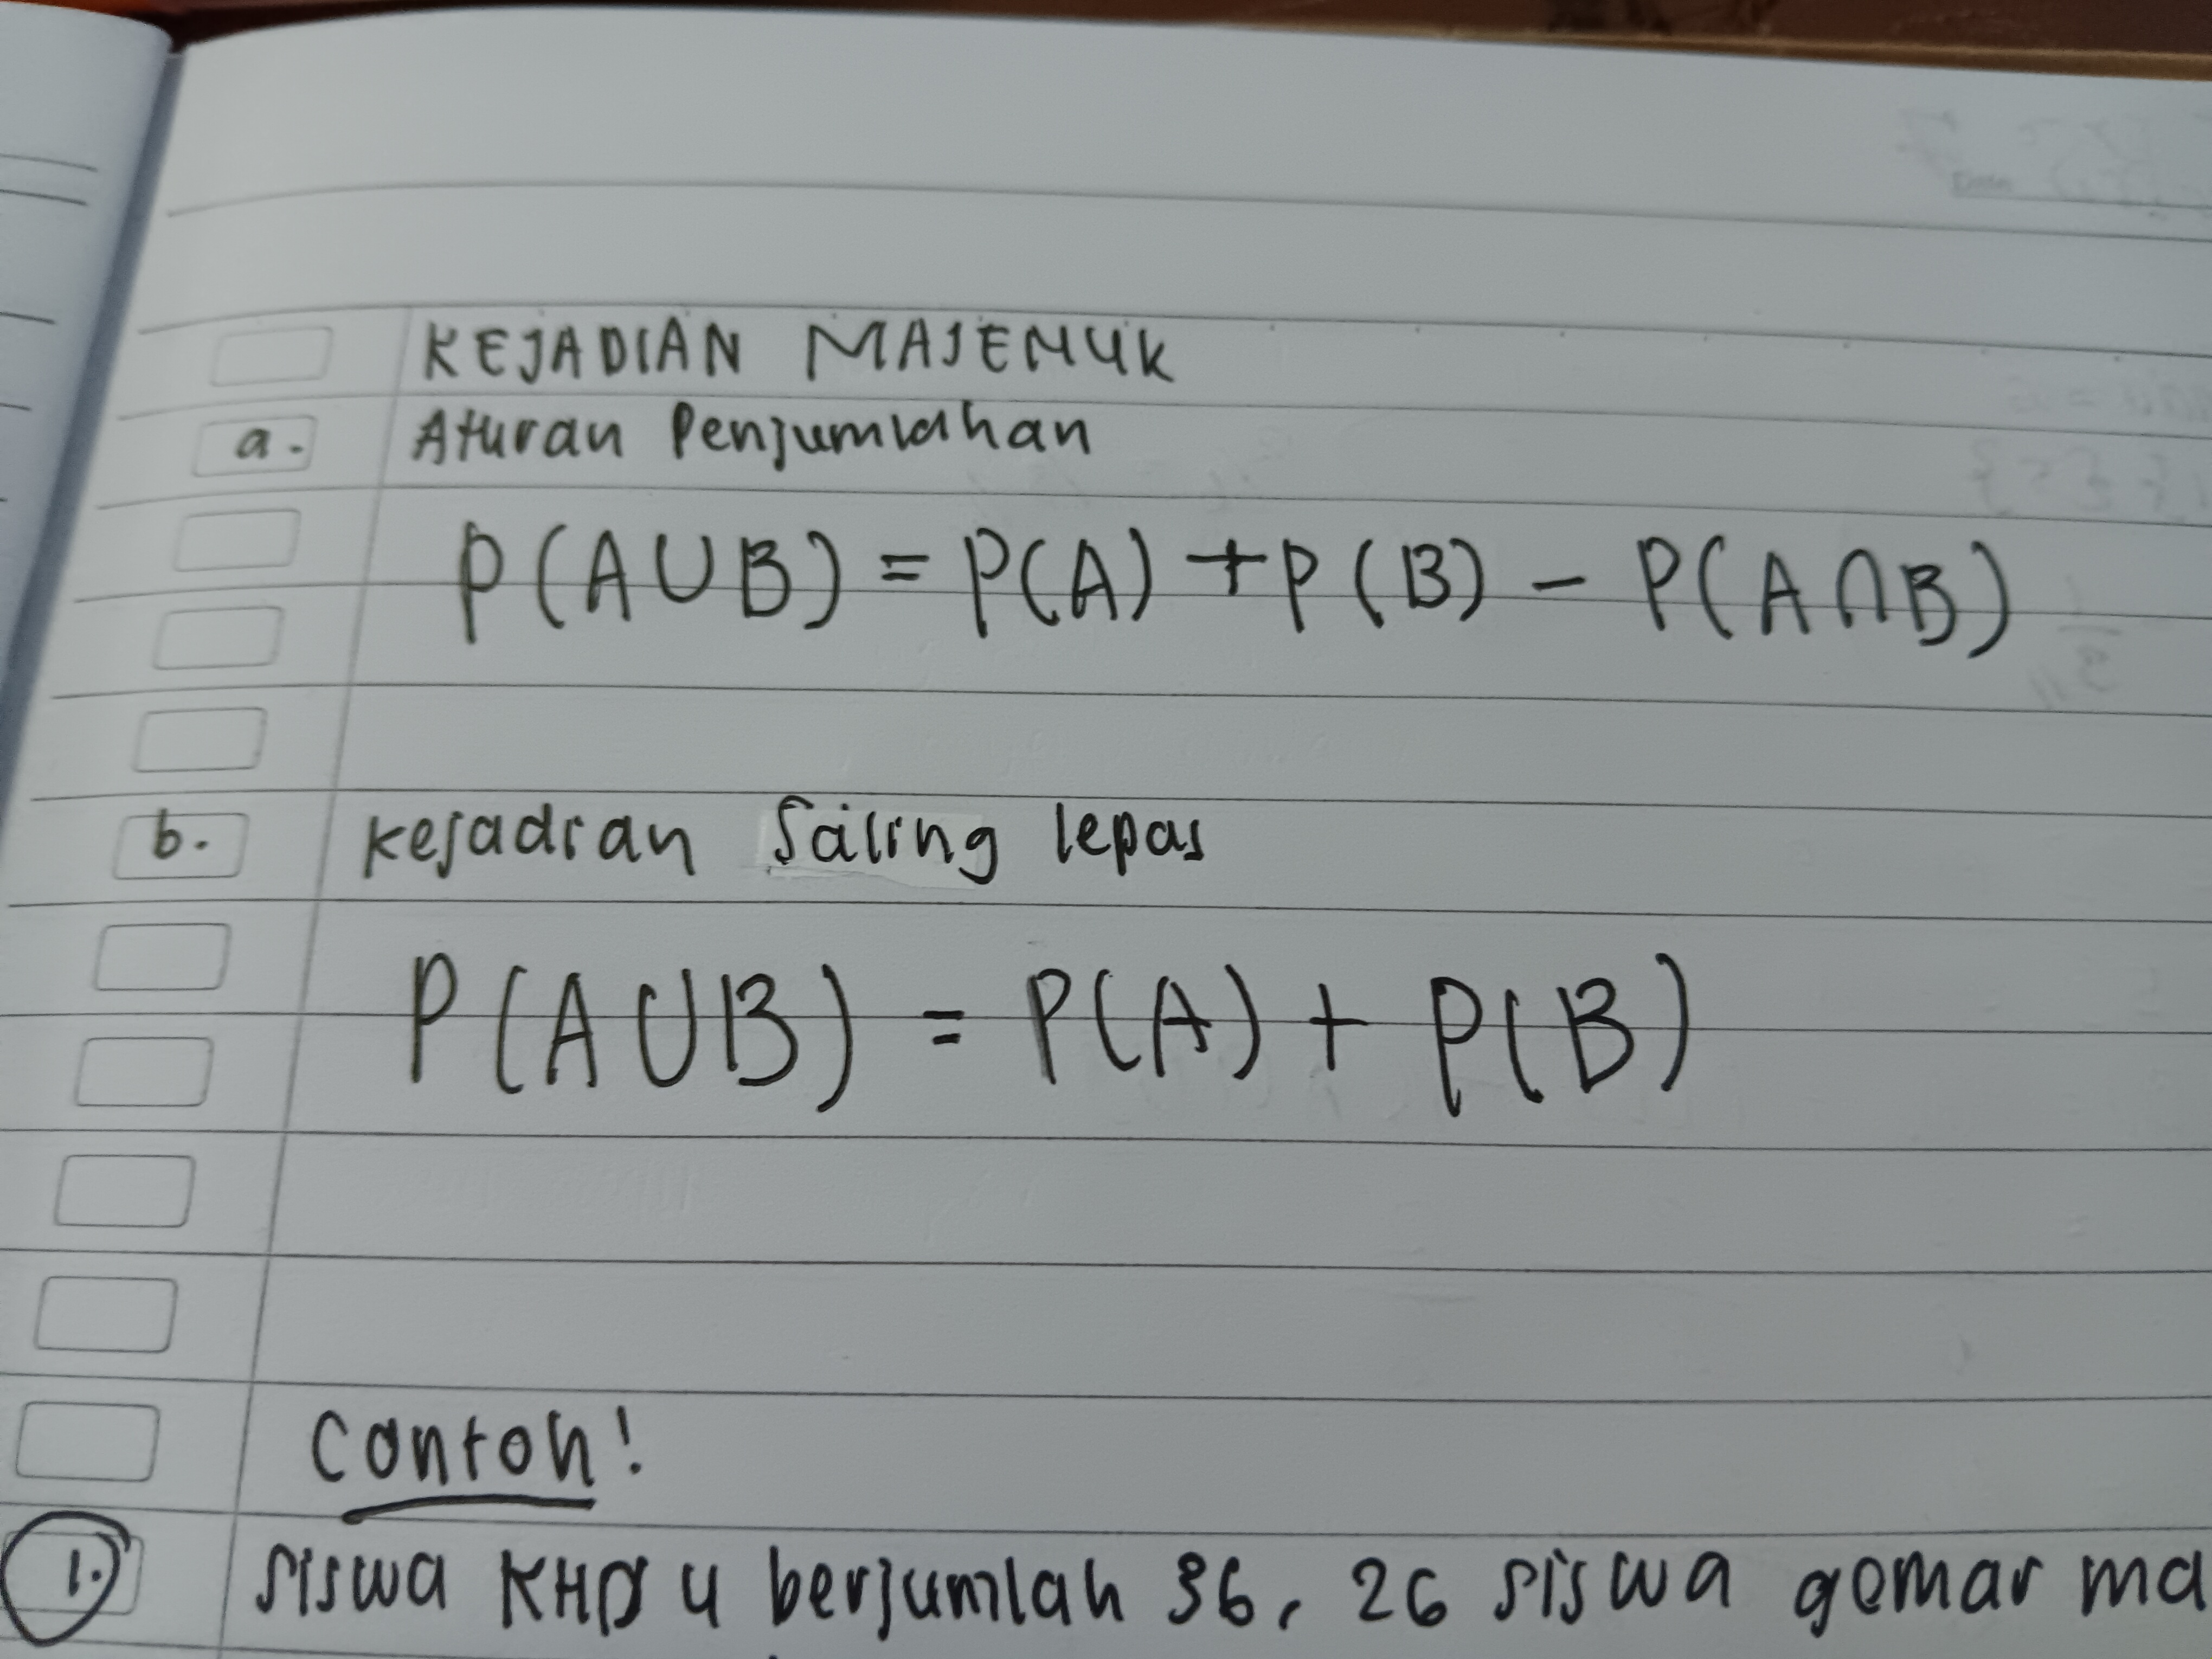 KEJADIAN MAJEMUK
a. Aturan Penjumlahan
P(A∪B) = P(A) + P(B) - P(A∩B)
b. kejadian Saling lepas
P(A∪B) = P(A) + P(B)
Contoh!
1. siswa KHD 4 berjumlah 36, 26 siswa gemar ma